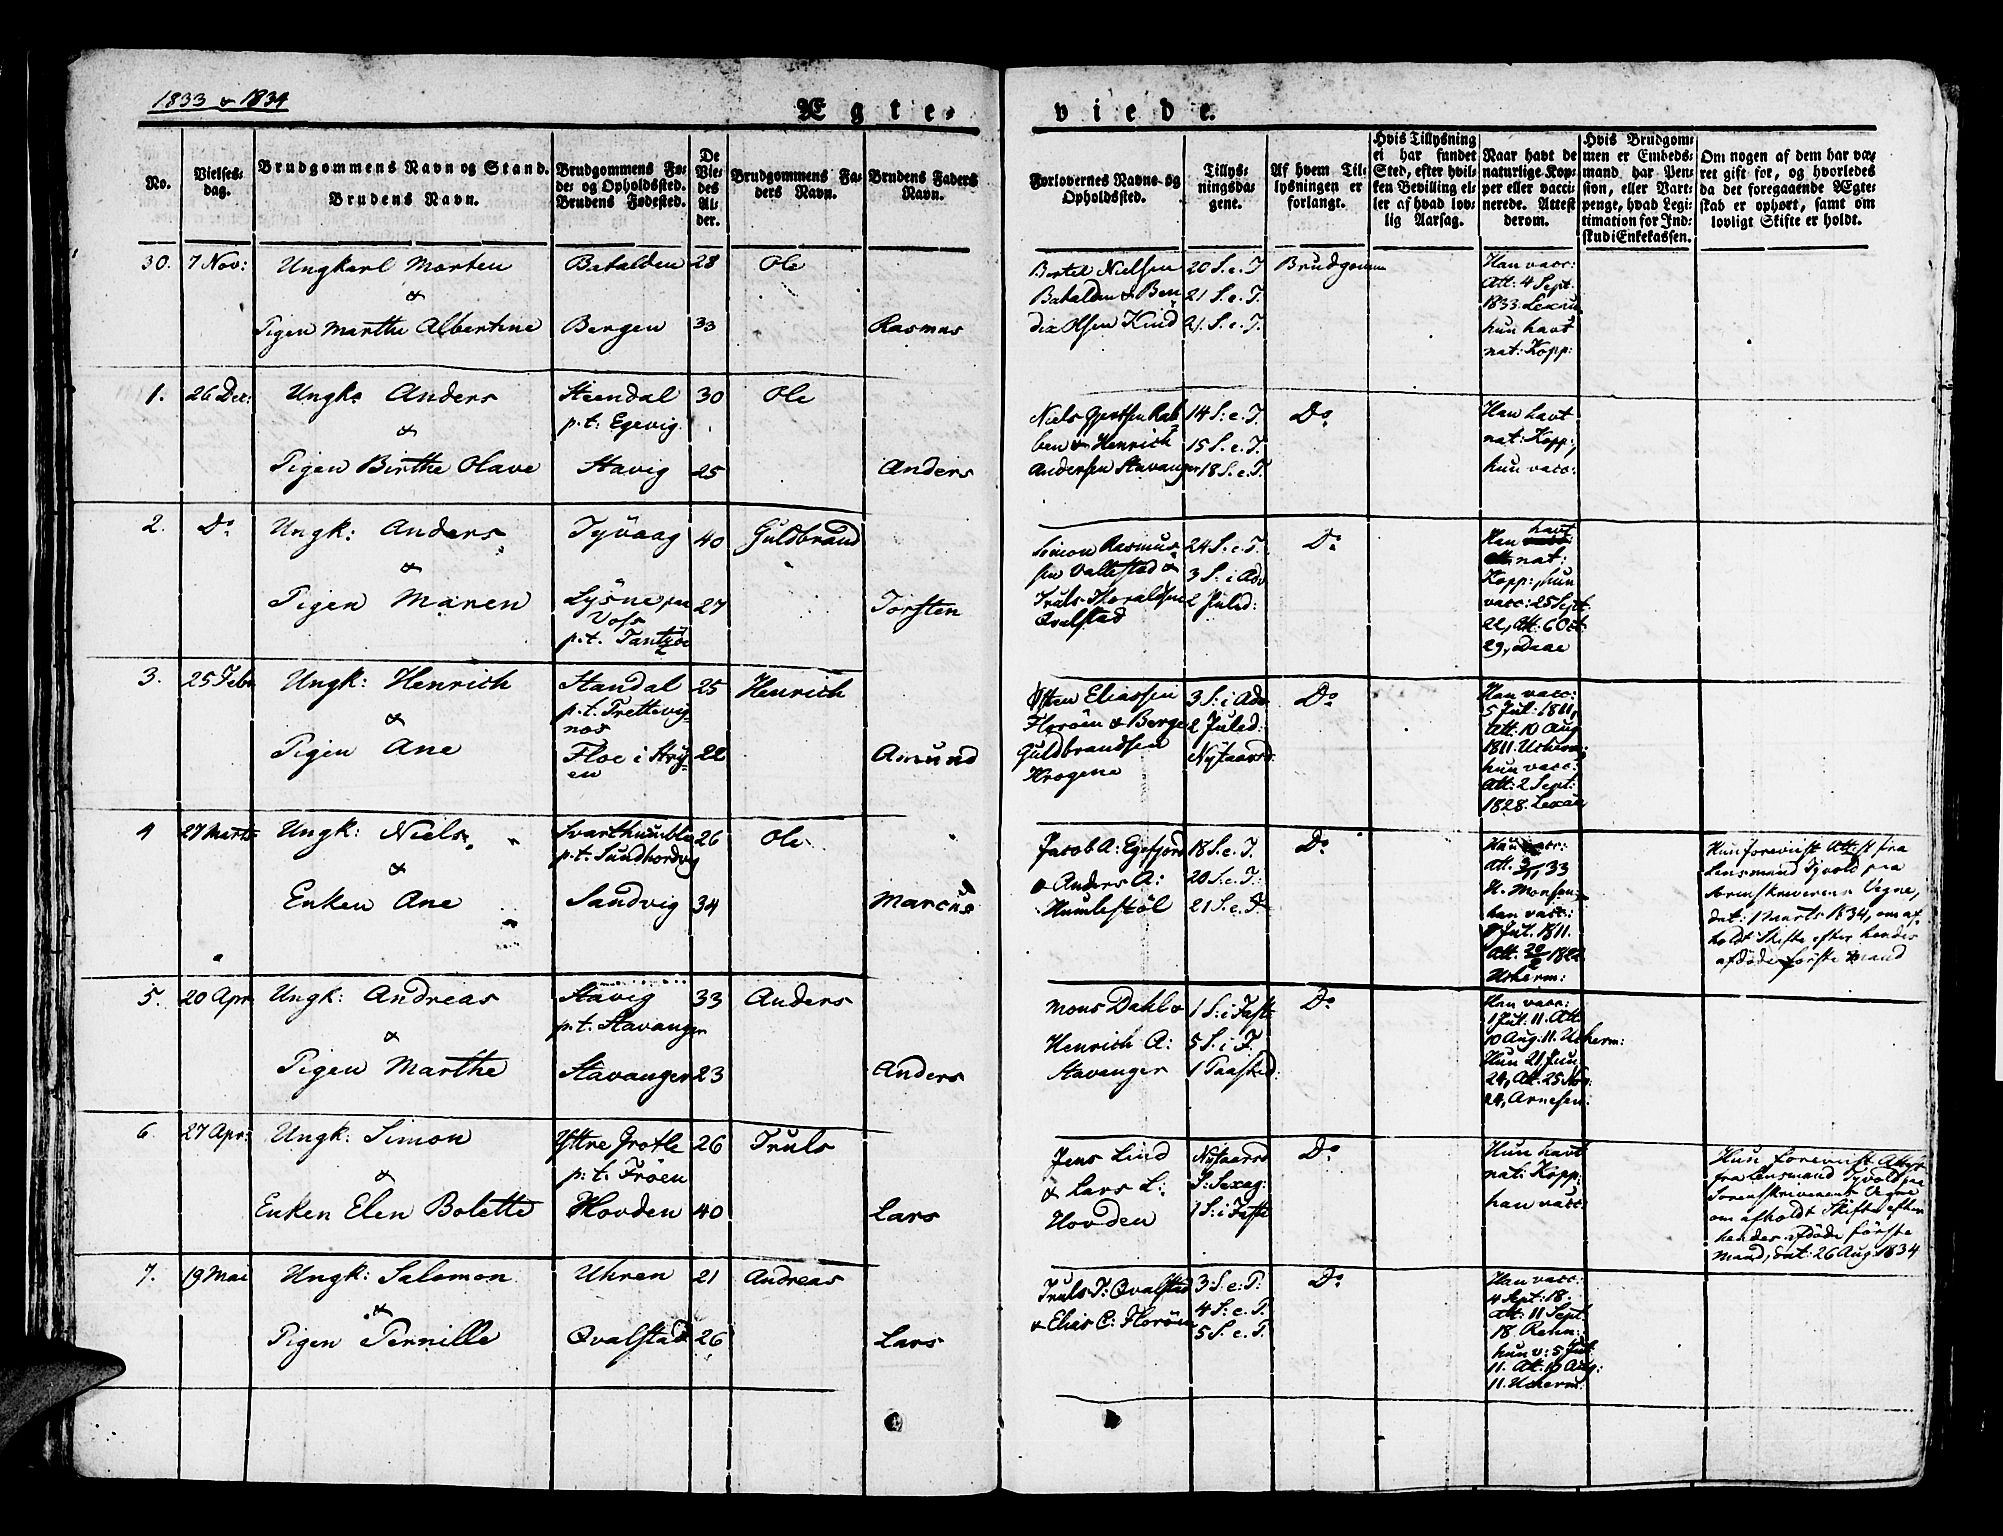 1833 & 1834
Ægteviede.
No.
Vielsesdag.
Brudgommens Navn og Stand.
Brudens Navn.
Brudgommens Fødе- og Opholdssted.
Brudens Fødested.
De Viedes Alder.
Brudgommens Faders Navn.
Brudens Faders Navn.
Forlovernes Navne og Opholdssted.
Tillysningsdagene.
Af hvem Tillysningen er forlangt.
Hvis Tillysning ei har fundet Sted, efter hvilken Bevilling eller af hvad lovlig Aarsag.
Naar havt de naturlige Kopper eller vaccinerede. Attest derom.
Hvis Brudgommen er Embedsmand, har Pension, eller Vartpenge, hvad Legitimation for Indskud i Enkekassen.
Om nogen af dem har været gift før, og hvorledes da det foregaaende Ægteskab er ophørt, samt om lovligt Skifte er holdt.
30. 7 Nov: Ungkarl Morten Batalden 28 Ole
&
Pigen Marthe Albertine Bergen 33 Rasmus
Bertel Nielsen 20 S. e. T. Brudgomm
Batalden & Ben 21 S. e. T.
dix Olsen Kind 21. S. e. T.
Han vacc:
Att: 4 Sept.
1833. Lexau
hun havt
nat: Kopp:
1. 26 Dec: Ungk: Anders Steendal 30 Ole
& p. t. Egevig.
Pigen Birthe Olave Stavig 25 Anders
Niels Gjertsen Rab 14 S. e. T. Do
ben & Henrich 15 S. e. T.
Andersen Stavanger 18 S. e. T.
Han havt
nat: Kopp;
hun vacc:
2. Do Ungk: Anders Tyvaag 40 Guldbrand
&
Pigen Maren Lysne paa 27 Torsten
Voss
p. t. Tantzøe
Simon Rasmus 24 S. e. T. Do
sen Vallestad & 3 S. i Adv
Truls Tharaldsen 2 Juled:
Qvalstad
Han havt
nat:
Kopp; hun
vacc: 25 Sept
22, Att. 6 Oct
29, Daae
3. 25 Febr Ungk: Henrich Standal 25 Henrich
& p. t. Trettevig
næs
Pigen Ane Floe i Stry 22 Amund
en
Østen Eliassen 3 S: i Adv Do
Florøen & Berge 2 Juled:
Guldbrandsen Nytaarsd:
Krogene
Han vacc:
5 Jul: 1811,
Att: 10 Aug
1811. Ucherm:
hun vacc:
Att: 2 Sept:
1828. Lexau
4 27 Marts Ungk: Niels Svarthumble 26 Ole
& p. t. Sundhordvig
Enken Ane Sandvig 34 Marcus
Jacob A: Egefjord 18 S. e. T. Do
& Anders A: 20 S. e. T:
Humlestøl 21 S. e. T
Hun vacc:
Att. 33
H. Monsen;
han vacc:
Jul. 1811.
Att. 1822
Ucherm:
Hun foreviist Attest fra
Lensmand Tyvold paa
Sorenskriverens Vegne,
dat: 1 Marts 1834, om af-
holdt Skifte efter hendes
afdøde første Mand
5. 20 Apr Ungk: Andreas Stavig 33 Anders
& p. t. Stavanger
Pigen Marthe Stavanger 23 Anders
Mons Dahl & 1 S: i Faste Do
Henrich A: 5 S: i F.
Stavanger 1 Paasked:
Han vacc:
1 Jul. 11. Att.
10 Aug. 11. Ucherm:
Hun 21 Jun
24, Att. 25 Nov
24, Arnesen:
6. 27 Apr: Ungk: Simon Yttre Grotle 26 Truls
& p: t. Frøen
Enken Elen Bolette Hovden 40 Lars
Jens Lind Nytaarsd Do
& Lars L: S: Sexag:
Hovden 1 S: i Faste
Hun havt
nat: Kopp:
han vacc:
Hun foreviist Attest
fra Lensmand Tyvold paa
Sorenskriverens Vegne
om afholdt Skifte efter
hendes afdøde første
Mand, dat: 26 Aug 1834
7. 19 Mai Ungk: Salomon Uhren 21 Andreas
&
Pigen Pernille Qvalstad 26 Lars
Truls T: Qvalstad 3 S. e. P: Do
& Elias E: Florøen 4 S: e. P.
5 S. e. P.
Han vacc:
4 Sept: 18.
Att: 11 Sept
18. Rehn:
hun v: 5 Jul
11. Att. 10 Aug:
11. Ucherm: